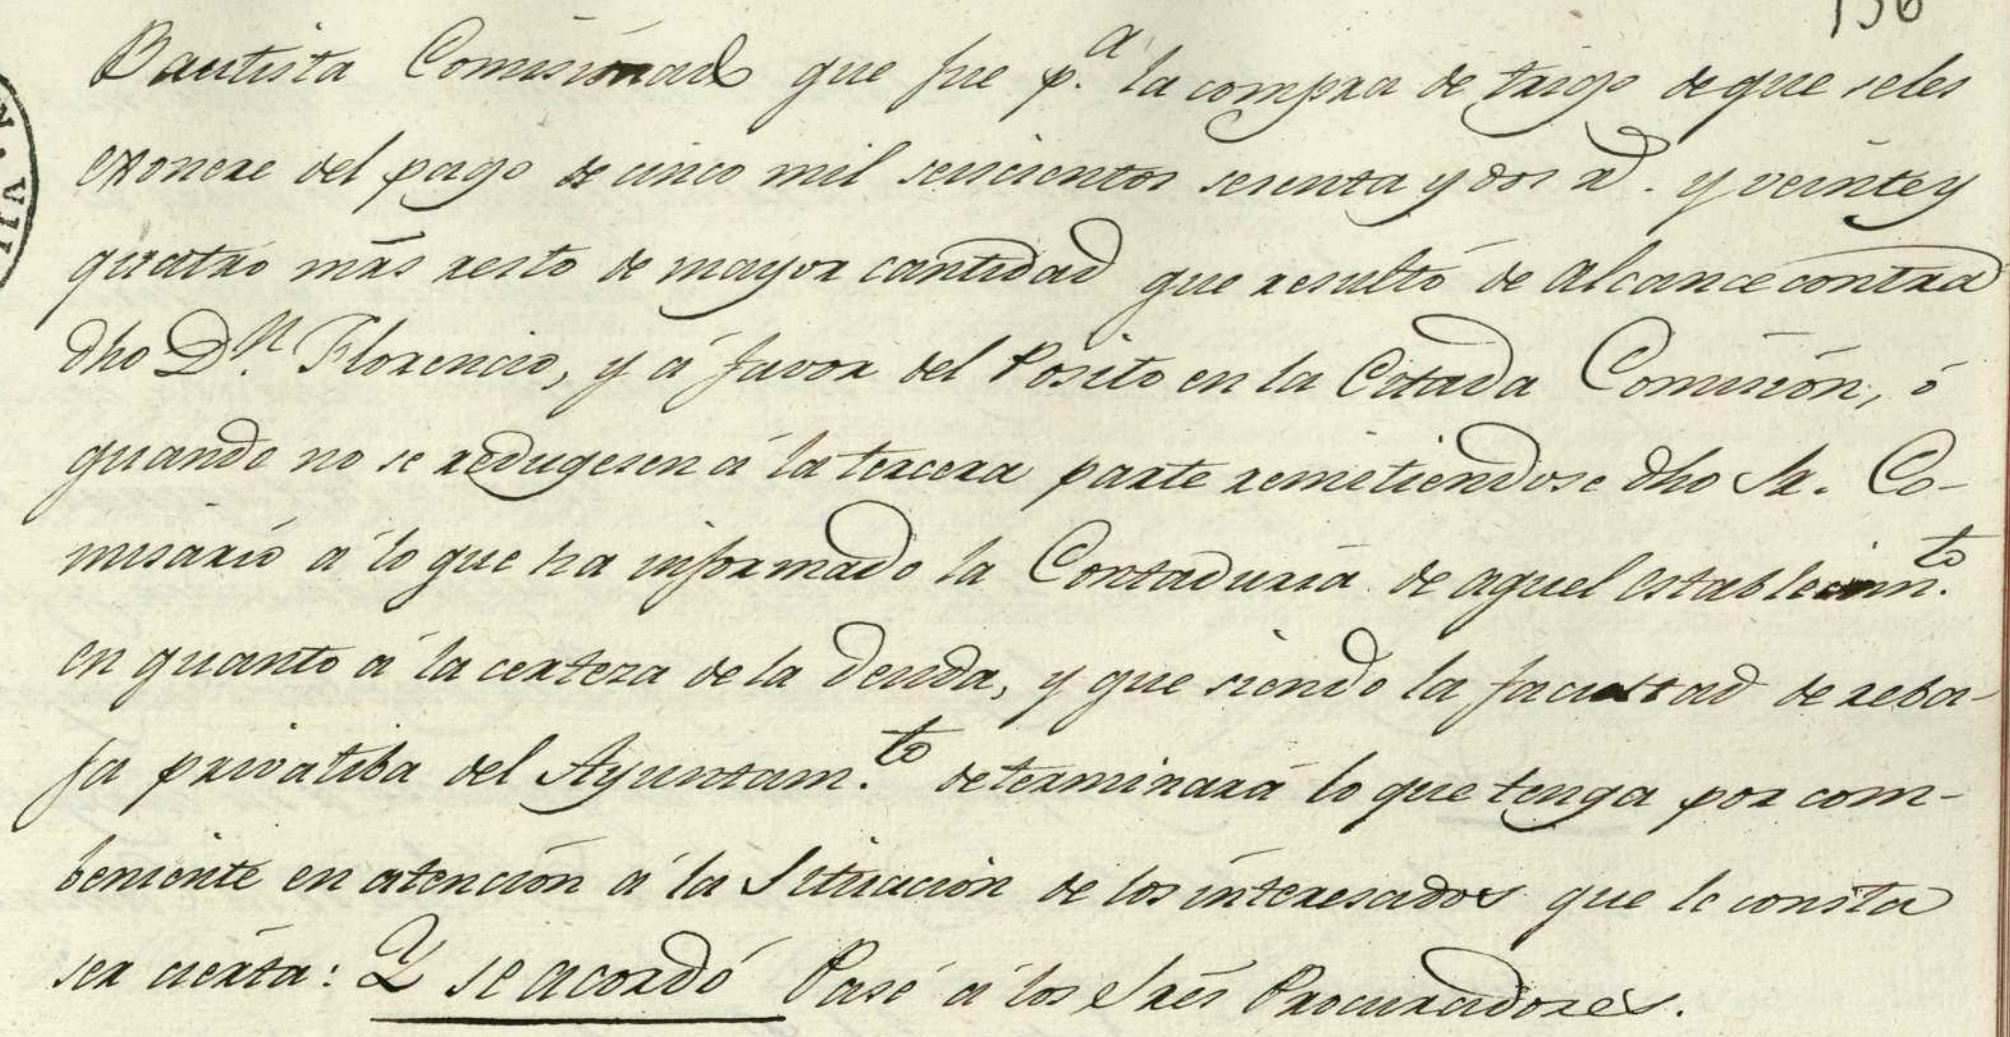 136
N. VII
Bautista Comisionado que fue p.ª la compra de trigo de que seles
exonere del pago de cinco mil seiscientos sesenta y dos r.s y veinte y
quatro mrs resto de mayor cantidad que resultó de alcance contra
dho D.n Florencio, y á favor del Posito en la Citada Comisión, ó
quando no se redugesen á la tercera parte remitiendose dho Sr. Co-
misario á lo que ha informado la Contaduria de aquel establecim.to
en quanto á la certeza de la Deuda, y que siendo la facultad de reba-
ja privatiba del Ayuntam.to determinará lo que tenga por com-
beniente en atención á la Situación de los interesados que le consta
ser cierta: Y se acordó Pase á los Sres Procuradores.